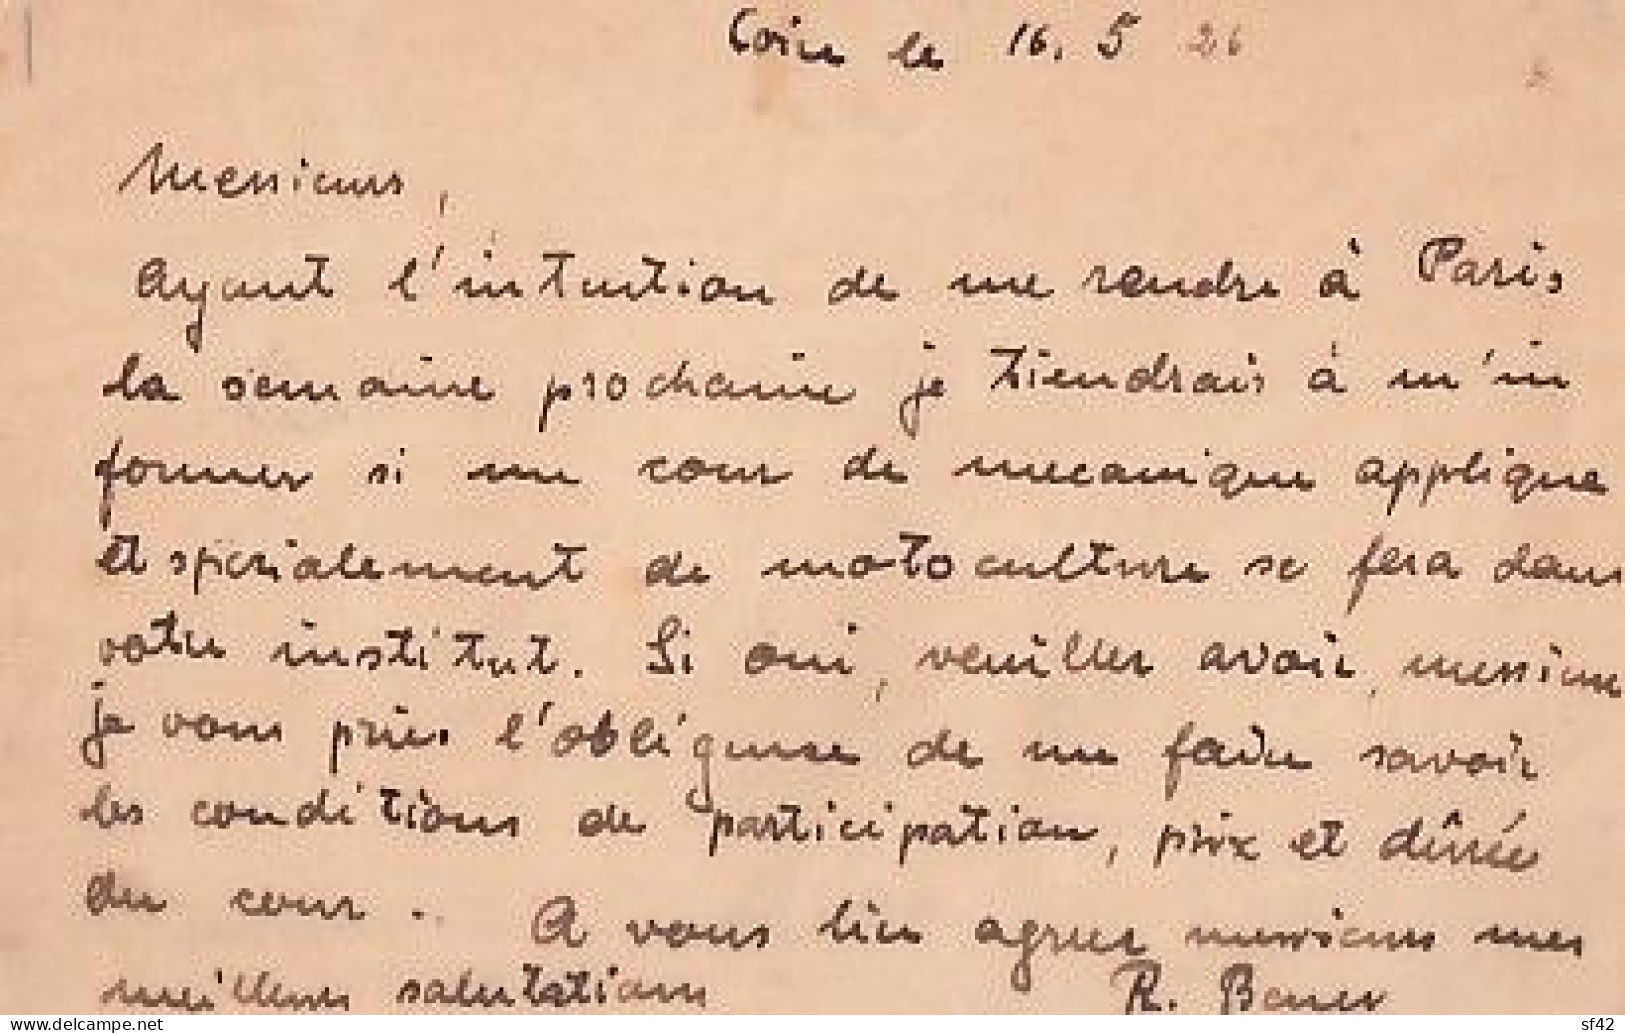 Coire le 16. 5 26
Messieurs,
Ayant l'intuition de me rendre à Paris
la semaine prochaine je tiendrais à m'in
former si une cour de mecanique applique
et spezialement de motoculture se fera dans
votre institut. Si oui, veuiller avoir, messieurs
je vous pries l'obligeuse de me faire savoir
les conditions de participation, prix et dûrée
du cour. A vous bien agreer messieurs mes
meilleurs salutations R. Bener
delcampe.net sf42